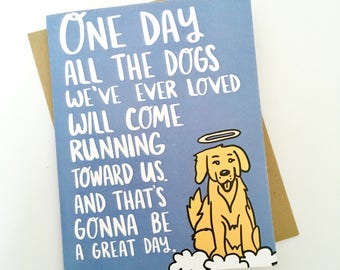 ONE DAY
ALL THE DOGS
WE'VE EVER LOVED
WILL COME
RUNNING
TOWARD US.
AND THAT'S
GONNA BE
A GREAT DAY.